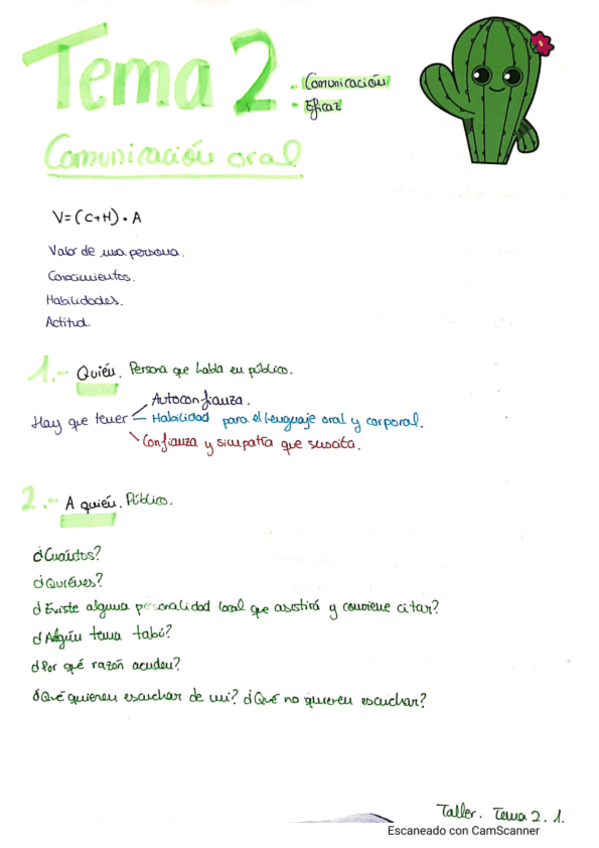 Tema 2
- Comunicación
- Eficaz
Comunicación oral
V=(C+H)·A
Valor de una persona.
Conocimientos.
Habilidades.
Actitud.
1.- Quién. Persona que habla en público.
Autoconfianza.
Hay que tener - Habilidad para el lenguaje oral y corporal.
Confianza y simpatía que suscita.
2.- A quién. Público.
¿Cuántos?
¿Quiénes?
¿Existe alguna personalidad local que asistirá y conviene citar?
¿Algún tema tabú?
¿Por qué razón acuden?
¿Qué quieren escuchar de mi? ¿Qué no quieren escuchar?
Taller. Tema 2. 1.
Escaneado con CamScanner